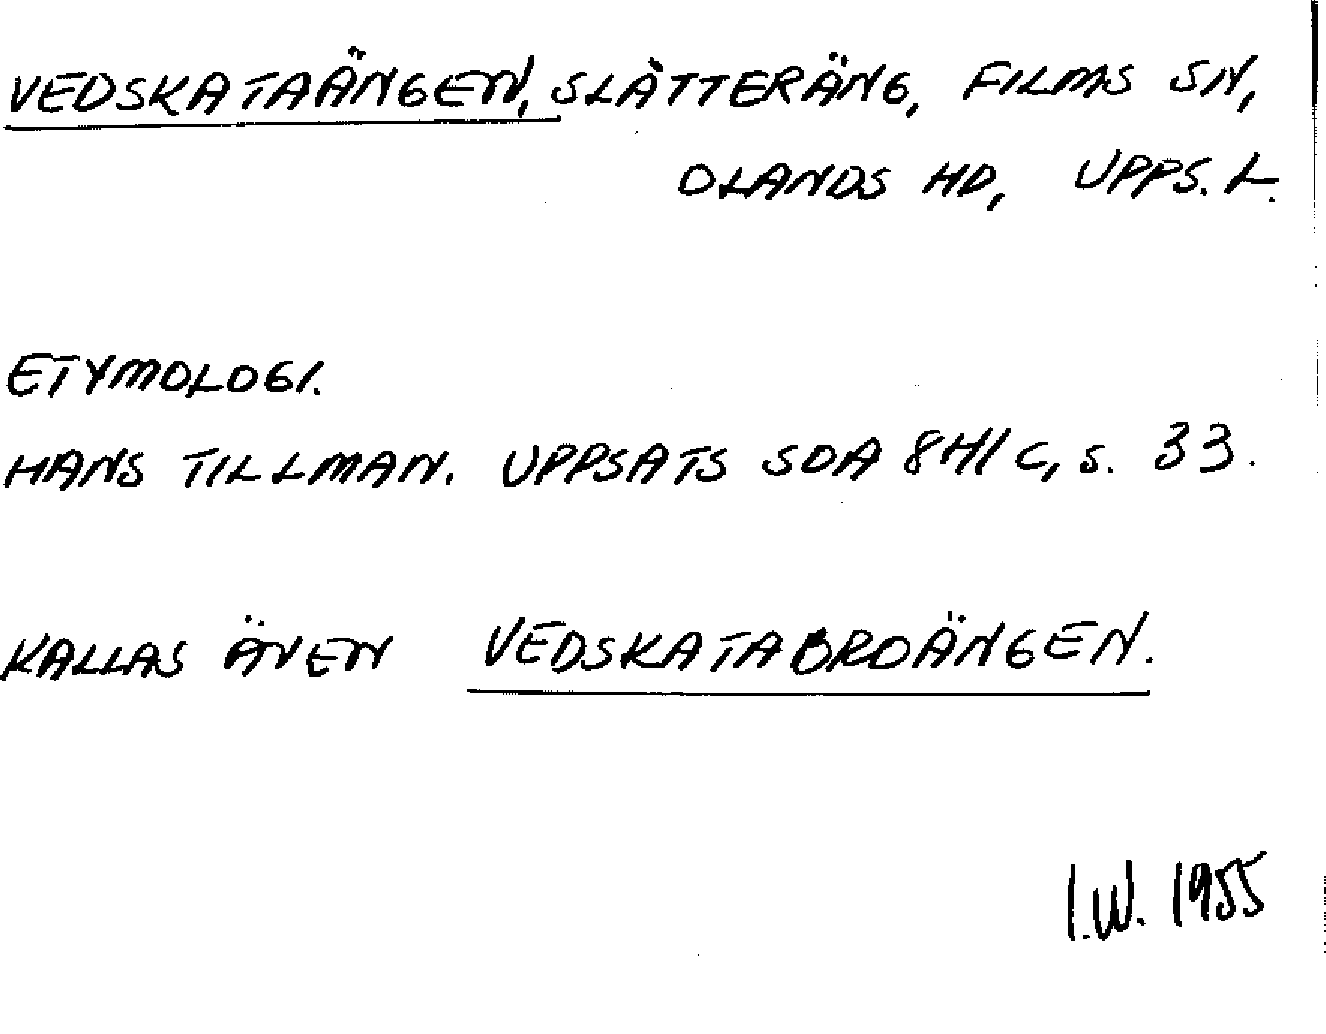 VEDSKATAÄNGEN, SLÄTTERÄNG, FILMS SN,
OLANDS HD, UPPS. L.
ETYMOLOGI.
HANS TILLMAN. UPPSATS SOA 841 C, S. 33.
KALLAS ÄVEN VEDSKATABROÄNGEN.
I.W. 1955